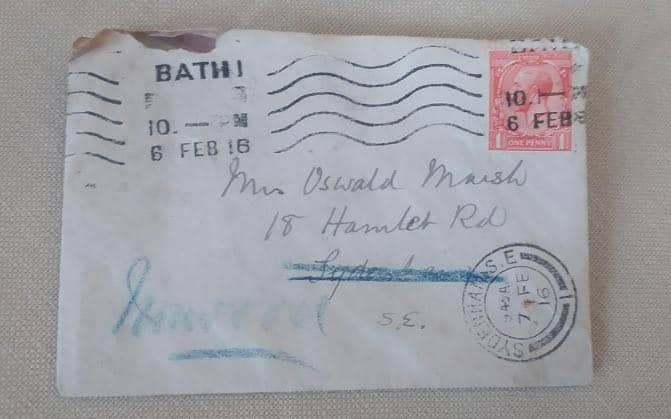 BATH 1
10. — PM
6 FEB 16
10. —
6 FEB 16
ONE PENNY
1 1
Mrs Oswald Marsh
18 Hamlet Rd
Sydenham
Norwood
S.E.
SYDENHAM S.E.
7 FE
16